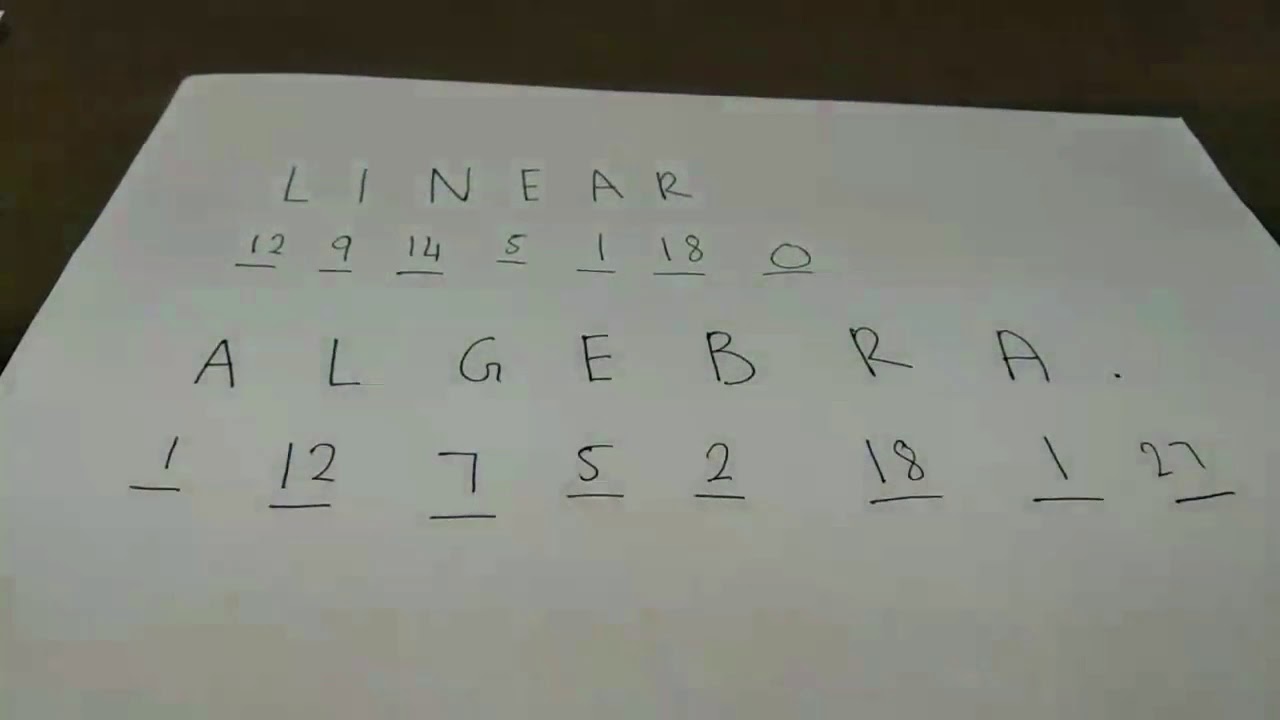 L I N E A R
12 9 14 5 1 18 0
A L G E B R A .
1 12 7 5 2 18 1 27